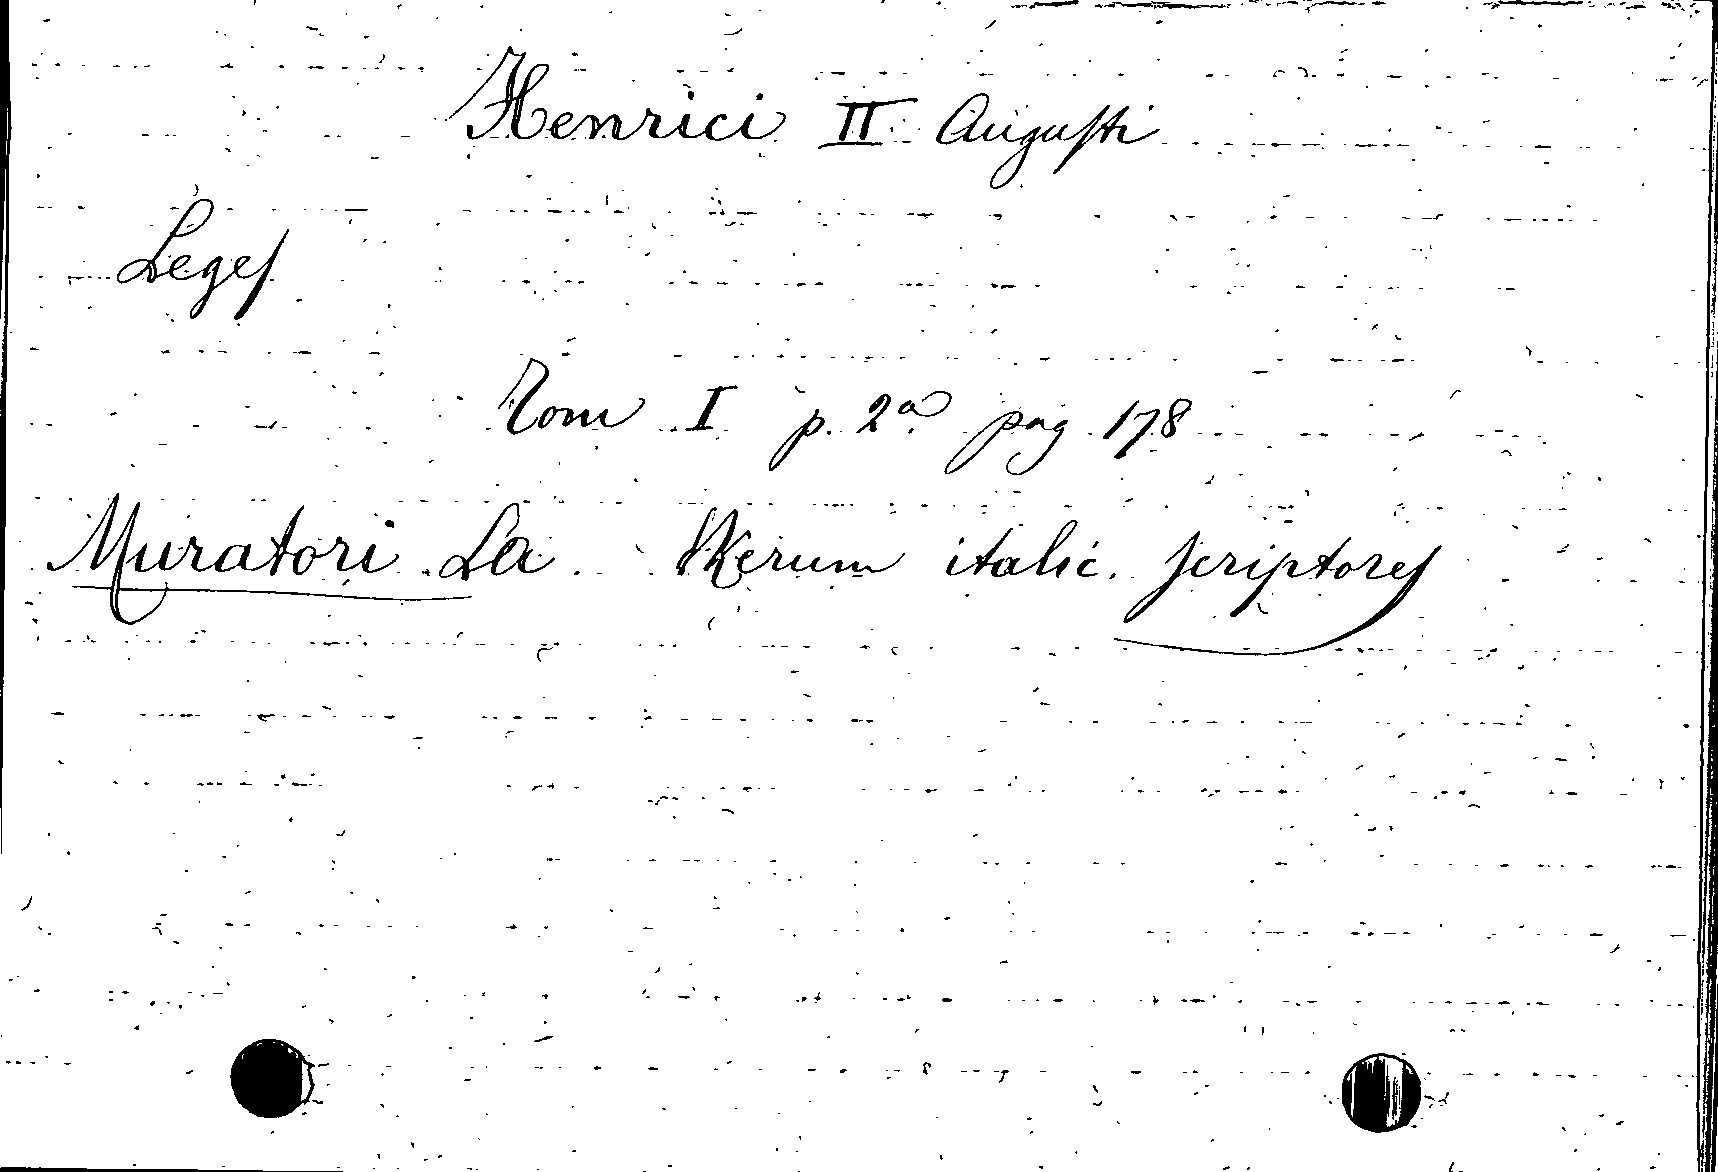 Henrici II Augusti
Leges
Tom I p. 2a pag. 178
Muratori La. Rerum italic. scriptores